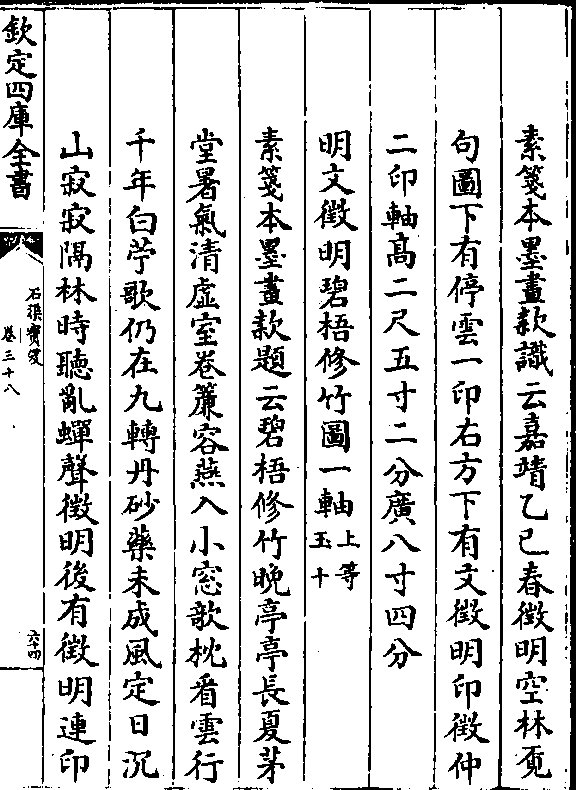 素箋本墨畫款識云嘉靖乙已春徴明空林覔
句圖下有停雲一印右方下有文徴明印徴仲
二印軸髙二尺五寸二分廣八寸四分
明文徴明碧梧修竹圖一軸上等玉十
素箋本墨畫款題云碧梧修竹晩亭亭長夏茅
堂暑氣清虚室卷簾容燕入小窓欹枕看雲行
千年白苧歌仍在九轉丹砂藥未成風定日沉
山寂寂隔林時聽亂蟬聲徴明後有徴明連印
欽定四庫全書
石渠寳笈
卷三十八
六十四